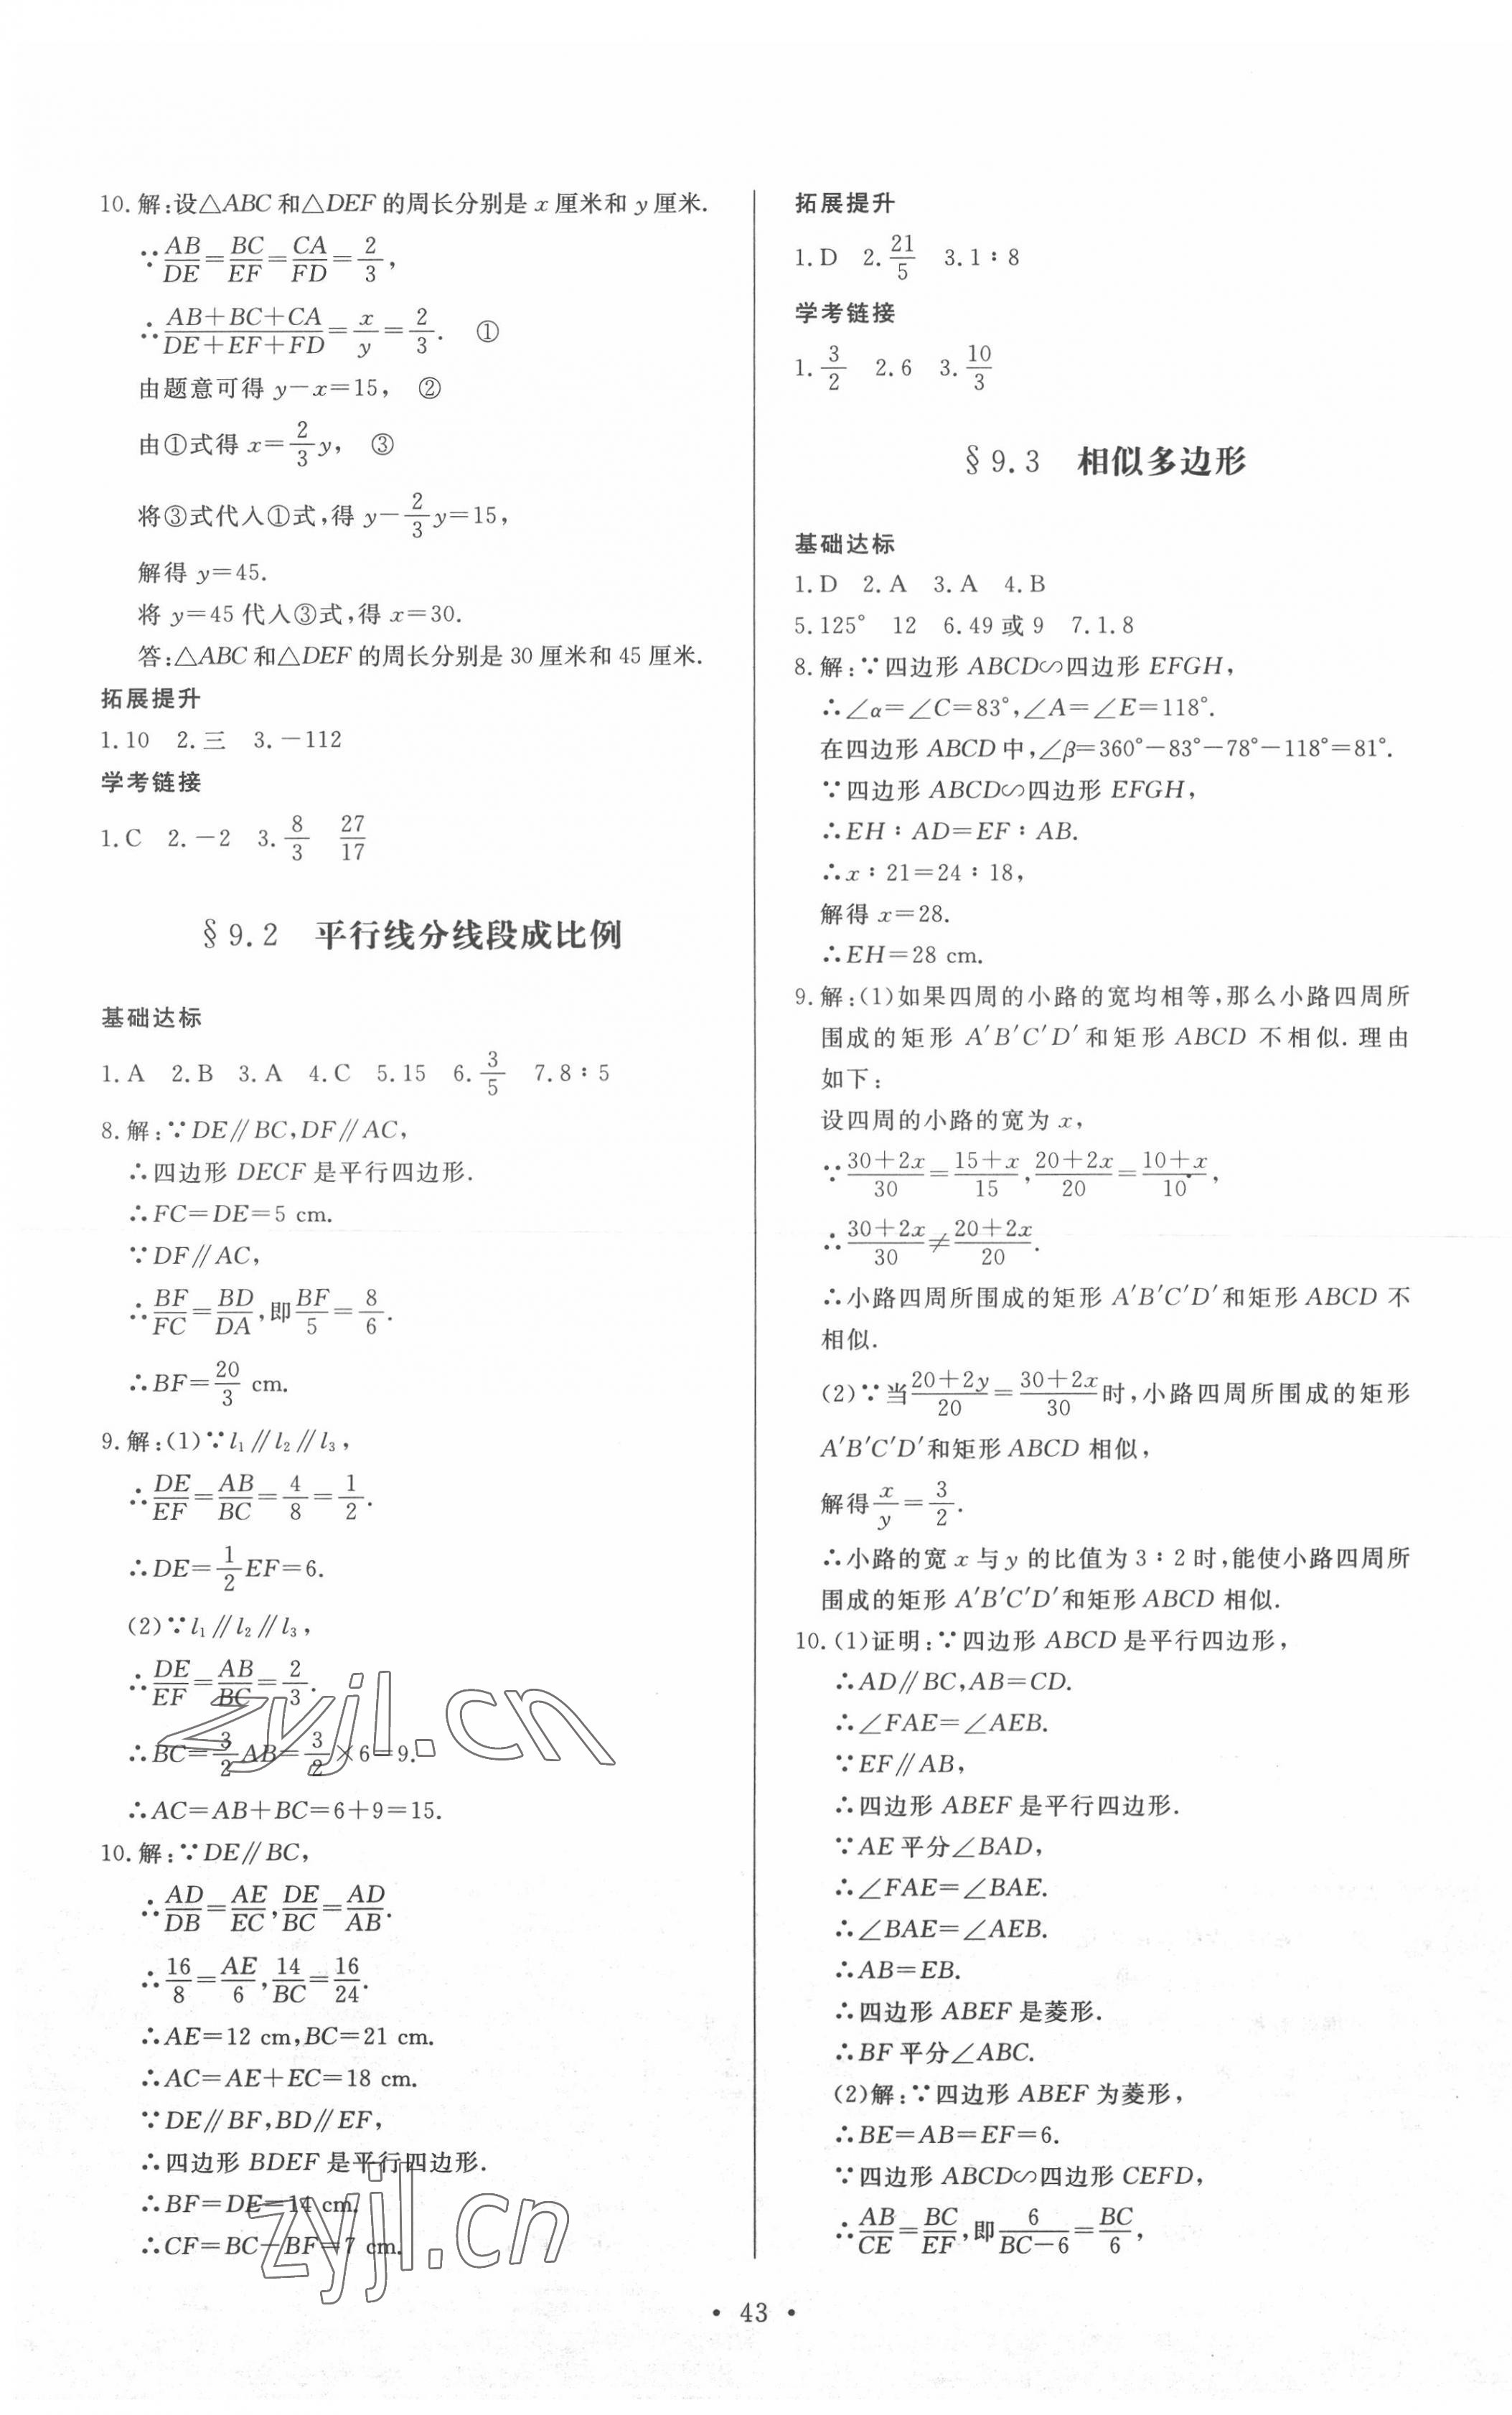 10.解:设△ABC和△DEF的周长分别是x厘米和y厘米.
∵AB/DE=BC/EF=CA/FD=2/3,
∴(AB+BC+CA)/(DE+EF+FD)=x/y=2/3. ①
由题意可得 y-x=15, ②
由①式得 x=2/3y, ③
将③式代入①式,得 y-2/3y=15,
解得 y=45.
将 y=45 代入③式,得 x=30.
答:△ABC和△DEF的周长分别是30厘米和45厘米.
拓展提升
1.10 2.三 3.-112
学考链接
1.C 2.-2 3.8/3 27/17
§9.2 平行线分线段成比例
基础达标
1.A 2.B 3.A 4.C 5.15 6.3/5 7.8∶5
8.解:∵DE∥BC,DF∥AC,
∴四边形 DECF 是平行四边形.
∴FC=DE=5 cm.
∵DF∥AC,
∴BF/FC=BD/DA,即BF/5=8/6.
∴BF=20/3 cm.
9.解:(1)∵l₁∥l₂∥l₃,
∴DE/EF=AB/BC=4/8=1/2.
∴DE=1/2EF=6.
(2)∵l₁∥l₂∥l₃,
∴DE/EF=AB/BC=2/3.
∴BC=3/2AB=3/2×6=9.
∴AC=AB+BC=6+9=15.
10.解:∵DE∥BC,
∴AD/DB=AE/EC,DE/BC=AD/AB.
∴16/8=AE/6,14/BC=16/24.
∴AE=12 cm,BC=21 cm.
∴AC=AE+EC=18 cm.
∵DE∥BF,BD∥EF,
∴四边形 BDEF 是平行四边形.
∴BF=DE=14 cm.
∴CF=BC-BF=7 cm.
拓展提升
1.D 2.21/5 3.1∶8
学考链接
1.3/2 2.6 3.10/3
§9.3 相似多边形
基础达标
1.D 2.A 3.A 4.B
5.125° 12 6.49或9 7.1.8
8.解:∵四边形 ABCD∽四边形 EFGH,
∴∠α=∠C=83°,∠A=∠E=118°.
在四边形 ABCD 中,∠β=360°-83°-78°-118°=81°.
∵四边形 ABCD∽四边形 EFGH,
∴EH∶AD=EF∶AB.
∴x∶21=24∶18,
解得 x=28.
∴EH=28 cm.
9.解:(1)如果四周的小路的宽均相等,那么小路四周所
围成的矩形 A′B′C′D′和矩形 ABCD 不相似.理由
如下:
设四周的小路的宽为 x,
∵(30+2x)/30=(15+x)/15,(20+2x)/20=(10+x)/10,
∴(30+2x)/30≠(20+2x)/20.
∴小路四周所围成的矩形 A′B′C′D′和矩形 ABCD 不
相似.
(2)∵当(20+2y)/20=(30+2x)/30时,小路四周所围成的矩形
A′B′C′D′和矩形 ABCD 相似,
解得x/y=3/2.
∴小路的宽 x 与 y 的比值为 3∶2 时,能使小路四周所
围成的矩形 A′B′C′D′和矩形 ABCD 相似.
10.(1)证明:∵四边形 ABCD 是平行四边形,
∴AD∥BC,AB=CD.
∴∠FAE=∠AEB.
∵EF∥AB,
∴四边形 ABEF 是平行四边形.
∵AE 平分∠BAD,
∴∠FAE=∠BAE.
∴∠BAE=∠AEB.
∴AB=EB.
∴四边形 ABEF 是菱形.
∴BF 平分∠ABC.
(2)解:∵四边形 ABEF 为菱形,
∴BE=AB=EF=6.
∵四边形 ABCD∽四边形 CEFD,
∴AB/CE=BC/EF,即6/(BC-6)=BC/6,
zyjl.cn
zyjl.cn
• 43 •